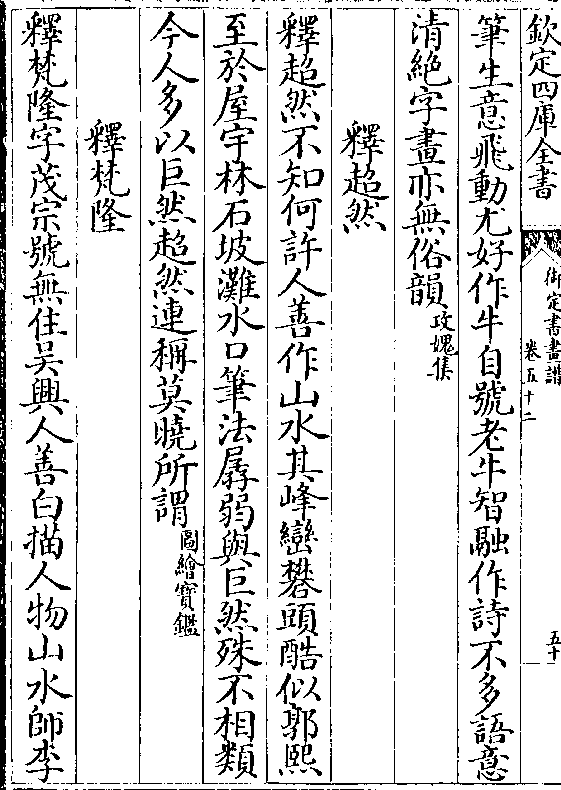 欽定四庫全書
御定書畫譜
卷五十二
五十
筆生意飛動尤好作牛自號老牛智融作詩不多語意
清絶字畫亦無俗韻攻媿集
釋超然
釋超然不知何許人善作山水其峰巒礬頭酷似郭熙
至於屋宇林石坡灘水口筆法孱弱與巨然殊不相類
今人多以巨然超然連稱莫曉所謂圖繪寶鑑
釋梵隆
釋梵隆字茂宗號無住吳興人善白描人物山水師李